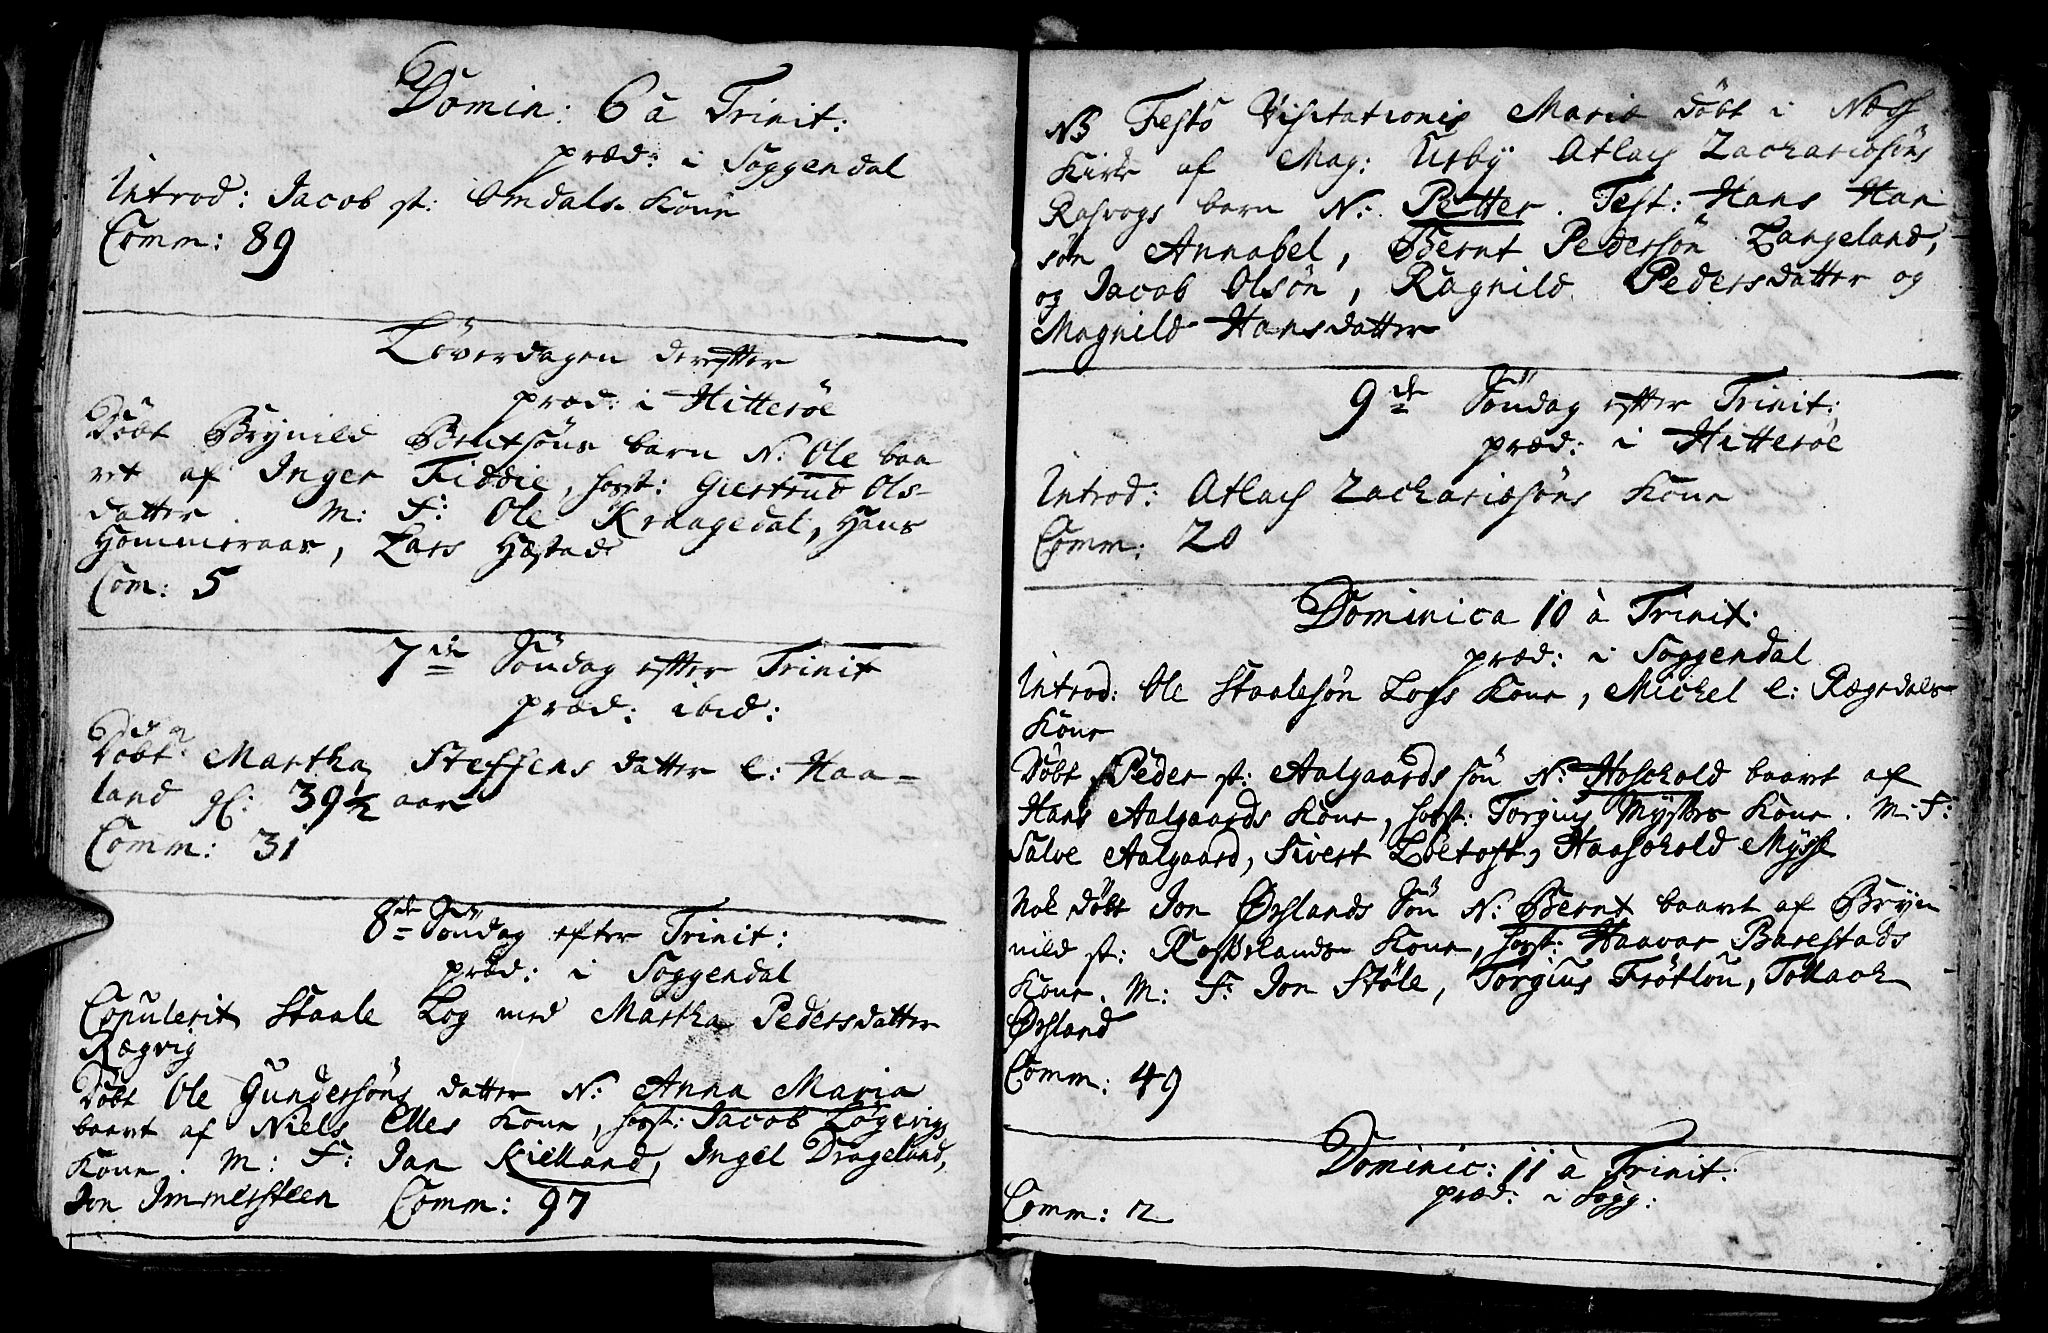 Domin: 6 à Trinit:
præd: i Soggendal
Introd: Jacob st: Omdals Kone
Comm: 89
Löverdagen derefter
præd: i Hitteröe
Döbt Brynild Bentsöns barn N: Ole baa
ret af Inger Fiddie, host: Giertrud Ols-
datter. M: F: Ole Kraagedal, Hans
Hammeraas, Lars Hæstad
Com: 5
7de Söndag efter Trinit
præd: ibid:
Martha Steffens datter e: Haa-
land gl: 39½ aar
Comm: 31
8de Söndag efter Trinit:
præd: i Soggendal
Copulerit Staale Log med Martha Pedersdatter
Rægevig
Döbt Ole Gundersöns datter N: Anna Maria
baaret af Niels Elles Kone, host: Jacob Løgevigs
Kone. M: F: Jan Kielland, Ingel Drageland,
Jon Immersteen Comm: 97
NB Festo Visitationis Mariæ döbt i Næss
Kirke af Mag: Urbÿ Atlach Zachariæsöns
Rasvogs barn N: Petter. Test: Hans Han
sön Annabel, Bernt Pedersön Langeland,
og Jacob Olsön, Ragnild Pedersdatter og
Magnild Hansdatter
9de Söndag efter Trinit:
præd: i Hitteröe
Introd: Atlach Zachariæsöns Kone
Comm: 20
Dominica 10 à Trinit:
præd: i Soggendal
Introd: Ole Staalesön Logs Kone, Michel e: Rægedals
Kone
Döbt Peder st: Aalgaards sön N: Hoschold baaret af
Hans Aalgaards Kone, host: Torgius Mÿsses Kone. M: F:
Salve Aalgaard, Sivert Löetoft, Haaschold Mÿsse
Nok döbt Jon Ørslands Sön N: Bernt baaret af Bryn
nild st: Rosselands Kone, host: Haavar Barestads
Kone. M: F: Jon Stöle, Torgius Frötlou, Tollach
Ørsland
Comm: 49
Dominic: 11 à Trinit:
præd: i Sogg:
Comm: 12